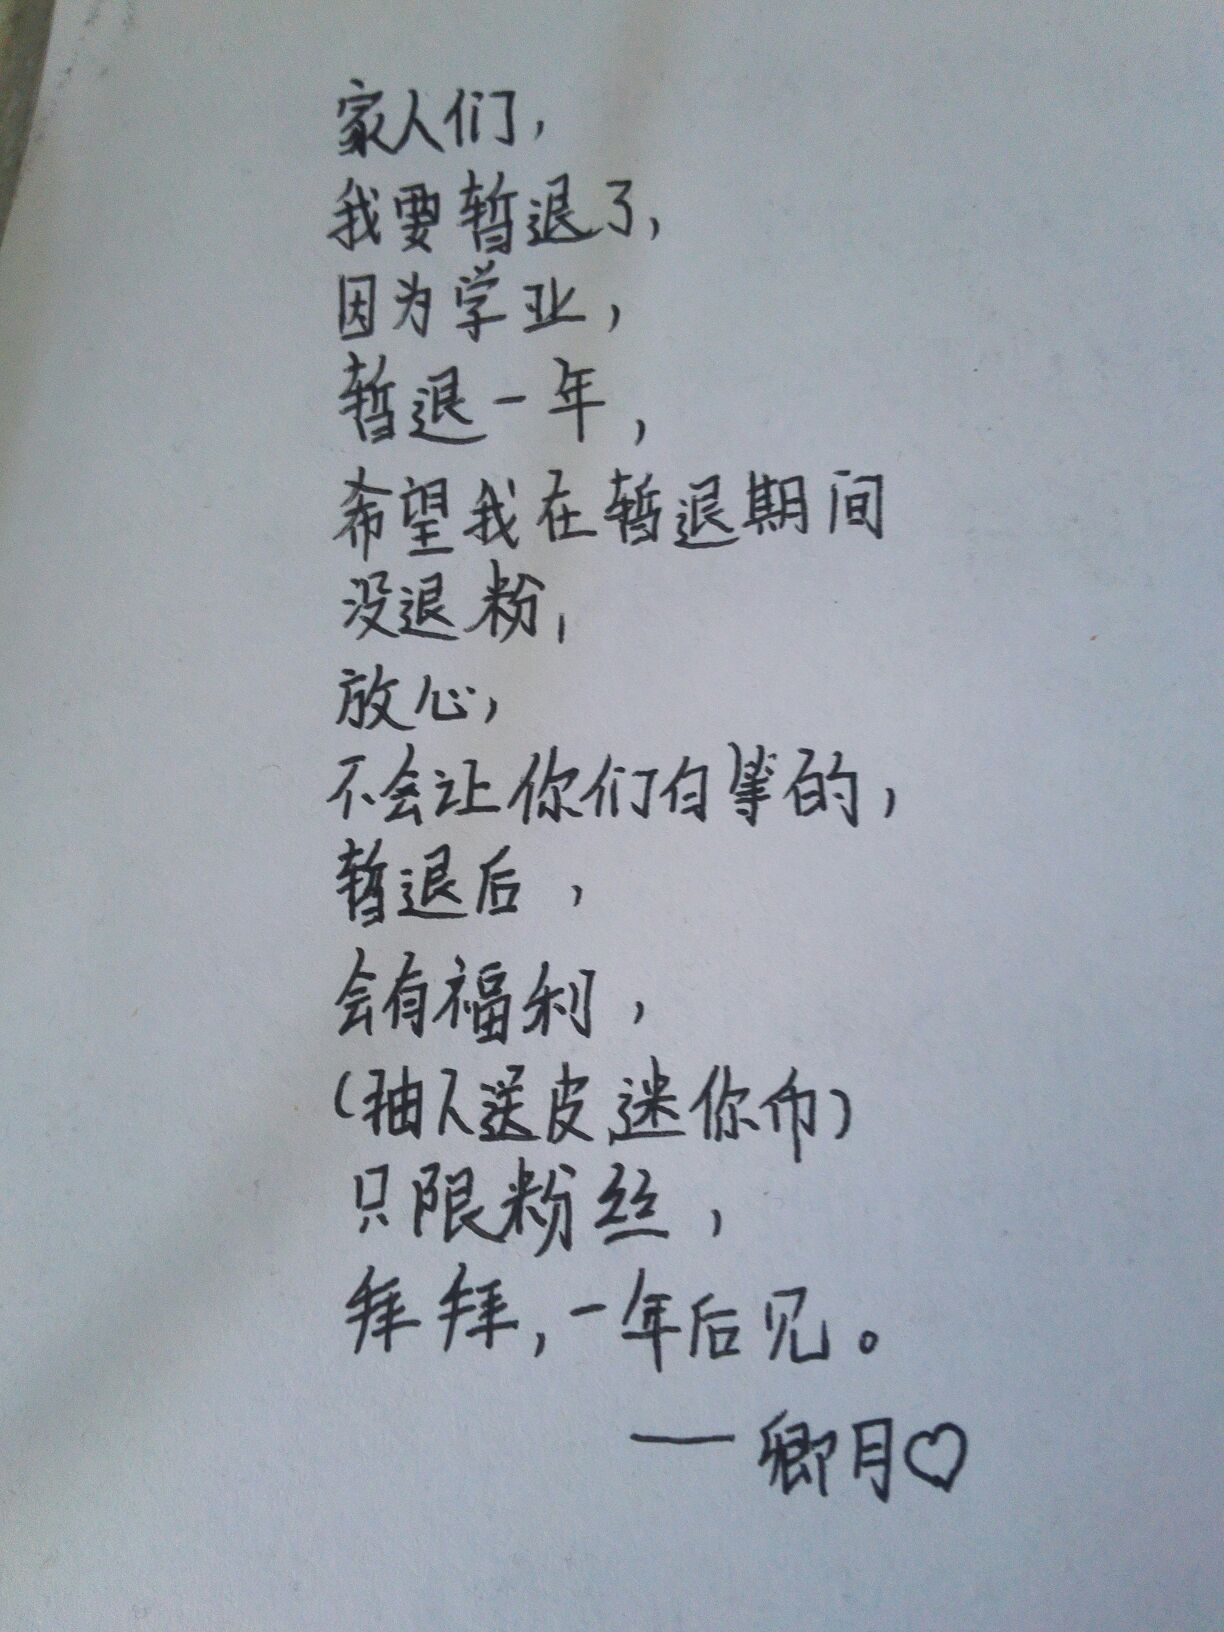 家人们，
我要暂退了，
因为学业，
暂退一年，
希望我在暂退期间
没退粉，
放心，
不会让你们白等的，
暂退后，
会有福利，
（抽人送皮，迷你币）
只限粉丝，
拜拜，一年后见。
——卿月♡